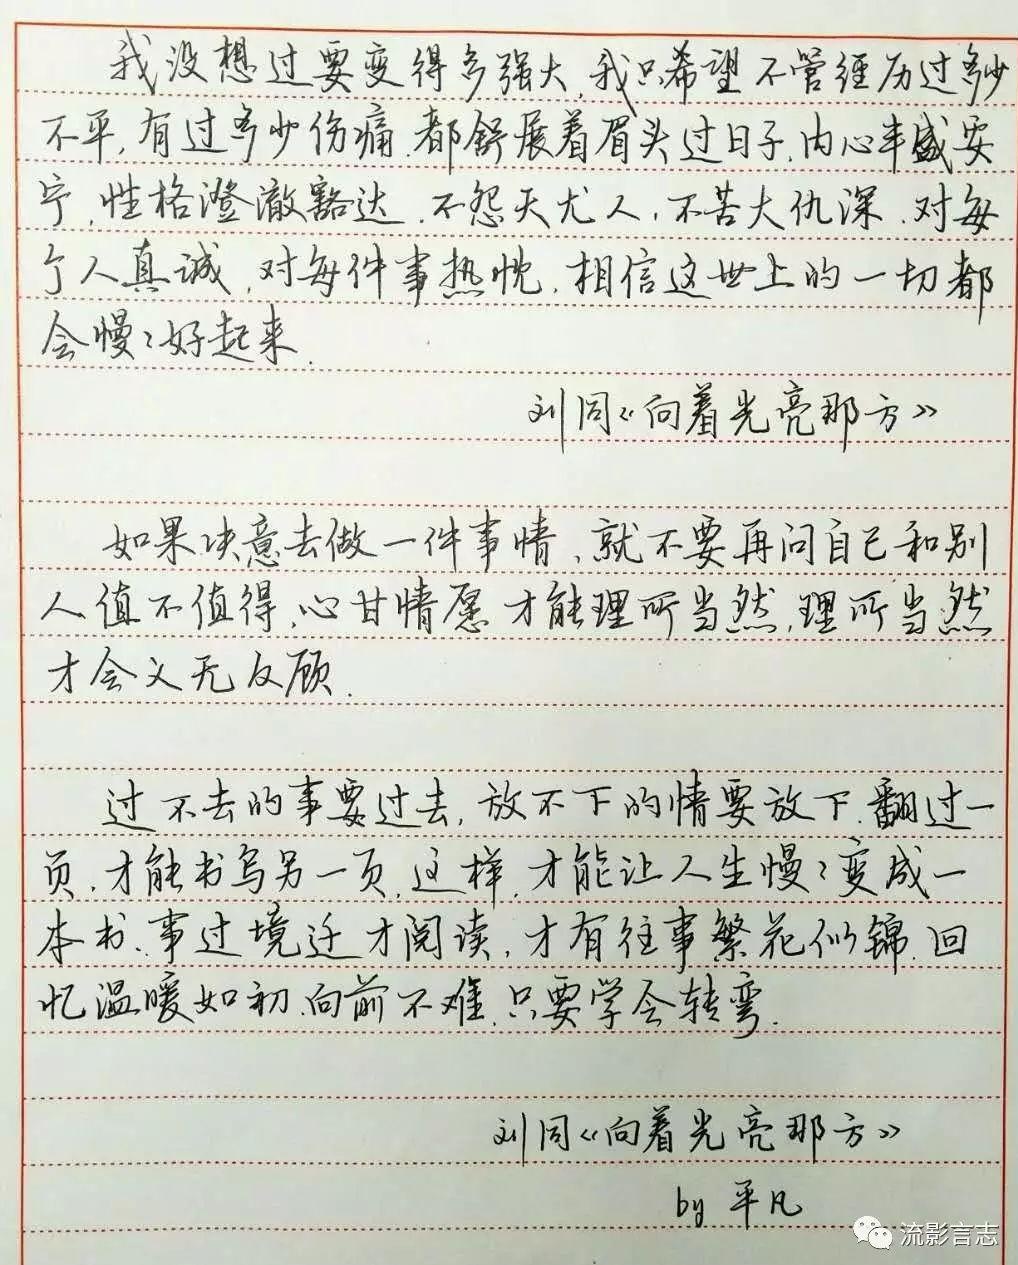 我没想过要变得多强大,我只希望不管经历过多少
不平,有过多少伤痛.都舒展着眉头过日子.内心丰盛安
宁,性格澄澈豁达.不怨天尤人,不苦大仇深.对每
个人真诚,对每件事热忱,相信这世上的一切都
会慢々好起来.
刘同《向着光亮那方》
如果决意去做一件事情,就不要再问自己和别
人值不值得,心甘情愿才能理所当然,理所当然
才会义无反顾.
过不去的事要过去,放不下的情要放下.翻过一
页,才能书写另一页,这样,才能让人生慢々变成一
本书.事过境迁才阅读,才有往事繁花似锦.回
忆温暖如初.向前不难,只要学会转弯.
刘同《向着光亮那方》
by 平凡
流影言志